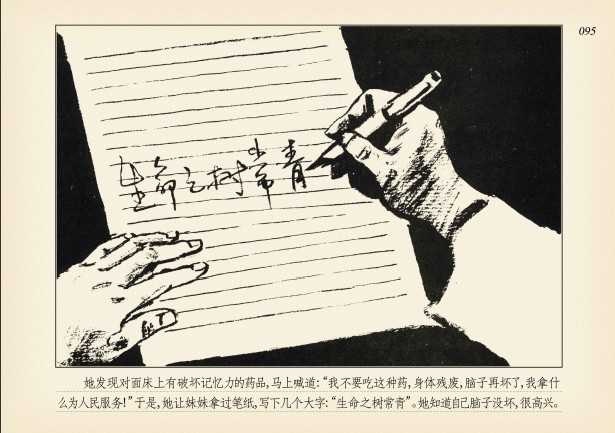 095
生命之树常青
她发现对面床上有破坏记忆力的药品，马上喊道：“我不要吃这种药，身体残废，脑子再坏了，我拿什
么为人民服务！”于是，她让妹妹拿过笔纸，写下几个大字：“生命之树常青”。她知道自己脑子没坏，很高兴。